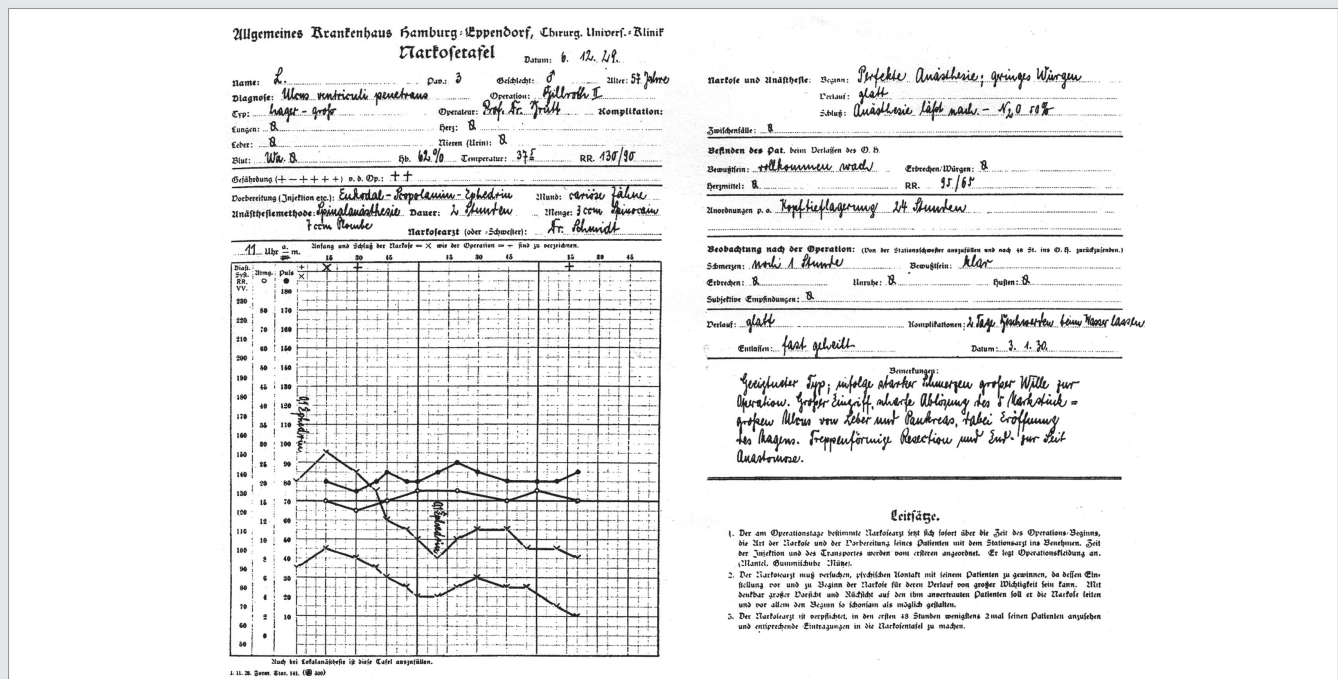 Allgemeines Krankenhaus Hamburg-Eppendorf, Chirurg. Univers.-Klinik
Narkosetafel
Datum: 6. 12. 29.
Name: L. Pav.: 3 Geschlecht: ♂ Alter: 57 Jahre
Diagnose: Ulcus ventriculi penetrans Operation: Billroth II
Typ: hager - groß Operateur: Prof. Dr. Komplikation:
Lungen: Herz:
Leber: Nieren (Urin):
Blut: Wa. Hb. 62 % Temperatur: 37⁵ RR. 130/90
Gefährdung (+ — + + + +) v. d. Op.: + +
Vorbereitung (Injektion etc.): Eukodal-Scopolamin-Ephedrin Mund: cariöse Zähne
Anästhesiemethode: Spinalanästhesie Dauer: 2 Stunden Menge: 3 ccm Spinocain
7 ccm Plombe Narkosearzt (oder -Schwester): Dr. Schmidt
11 Uhr a. m. Anfang und Schluß der Narkose = × wie der Operation = + sind zu verzeichnen.
15 30 45 15 30 45 15 30 45
Diast. Syst. RR. VV. Atmg. Puls
180
230
80 170
220
70 160
210
60 150
200
50 140
190
45 130
180
40 120
170
35 110
160
30 100
150
25 90
140
20 80
130
15 70
120
12 60
110
10 50
100
8 40
90
6 30
80
4 20
70
2 10
60
0
50
Ephedrin
Ephedrin
Auch bei Lokalanästhesie ist diese Tafel auszufüllen.
1. 11. 28. Form. Stor. 141.
Narkose und Anästhesie: Beginn: Perfekte Anästhesie; geringes Würgen
Verlauf: glatt
Schluß: Anästhesie läßt nach. - N₂O 50%
Zwischenfälle:
Befinden des Pat. beim Verlassen des O. H.
Bewußtsein: vollkommen wach Erbrechen/Würgen:
Herzmittel: RR. 95/65
Anordnungen p. o. Kopftieflagerung 24 Stunden
Beobachtung nach der Operation: (Von der Stationsschwester auszufüllen und nach 48 St. ins O. H. zurückzusenden.)
Schmerzen: noch 1 Stunde Bewußtsein: klar
Erbrechen: Unruhe: Husten:
Subjektive Empfindungen:
Verlauf: glatt Komplikationen: 2 Tage Beschwerden beim Wasser lassen
Entlassen: fast geheilt Datum: 3. 1. 30.
Bemerkungen:
Geeigneter Typ; infolge starker Schmerzen großer Wille zur
Operation. Großer Eingriff, scharfe Ablösung des 5 Markstück =
großen Ulcus von Leber und Pankreas, dabei Eröffnung
des Magens. Treppenförmige Resection und End- zur Seit
Anastomose.
Leitsätze.
1. Der am Operationstage bestimmte Narkosearzt setzt sich sofort über die Zeit des Operations-Beginns,
die Art der Narkose und der Vorbereitung seines Patienten mit dem Stationsarzt ins Benehmen. Zeit
der Injektion und des Transportes werden vom ersteren angeordnet. Er legt Operationskleidung an.
(Mantel, Gummischuhe Mütze).
2. Der Narkosearzt muß versuchen, psychischen Kontakt mit seinem Patienten zu gewinnen, da dessen Ein-
stellung vor und zu Beginn der Narkose für deren Verlauf von großer Wichtigkeit sein kann. Mit
denkbar großer Vorsicht und Rücksicht auf den ihm anvertrauten Patienten soll er die Narkose leiten
und vor allem den Beginn so schonsam als möglich gestalten.
3. Der Narkosearzt ist verpflichtet, in den ersten 48 Stunden wenigstens 2mal seinen Patienten anzusehen
und entsprechende Eintragungen in die Narkosentafel zu machen.